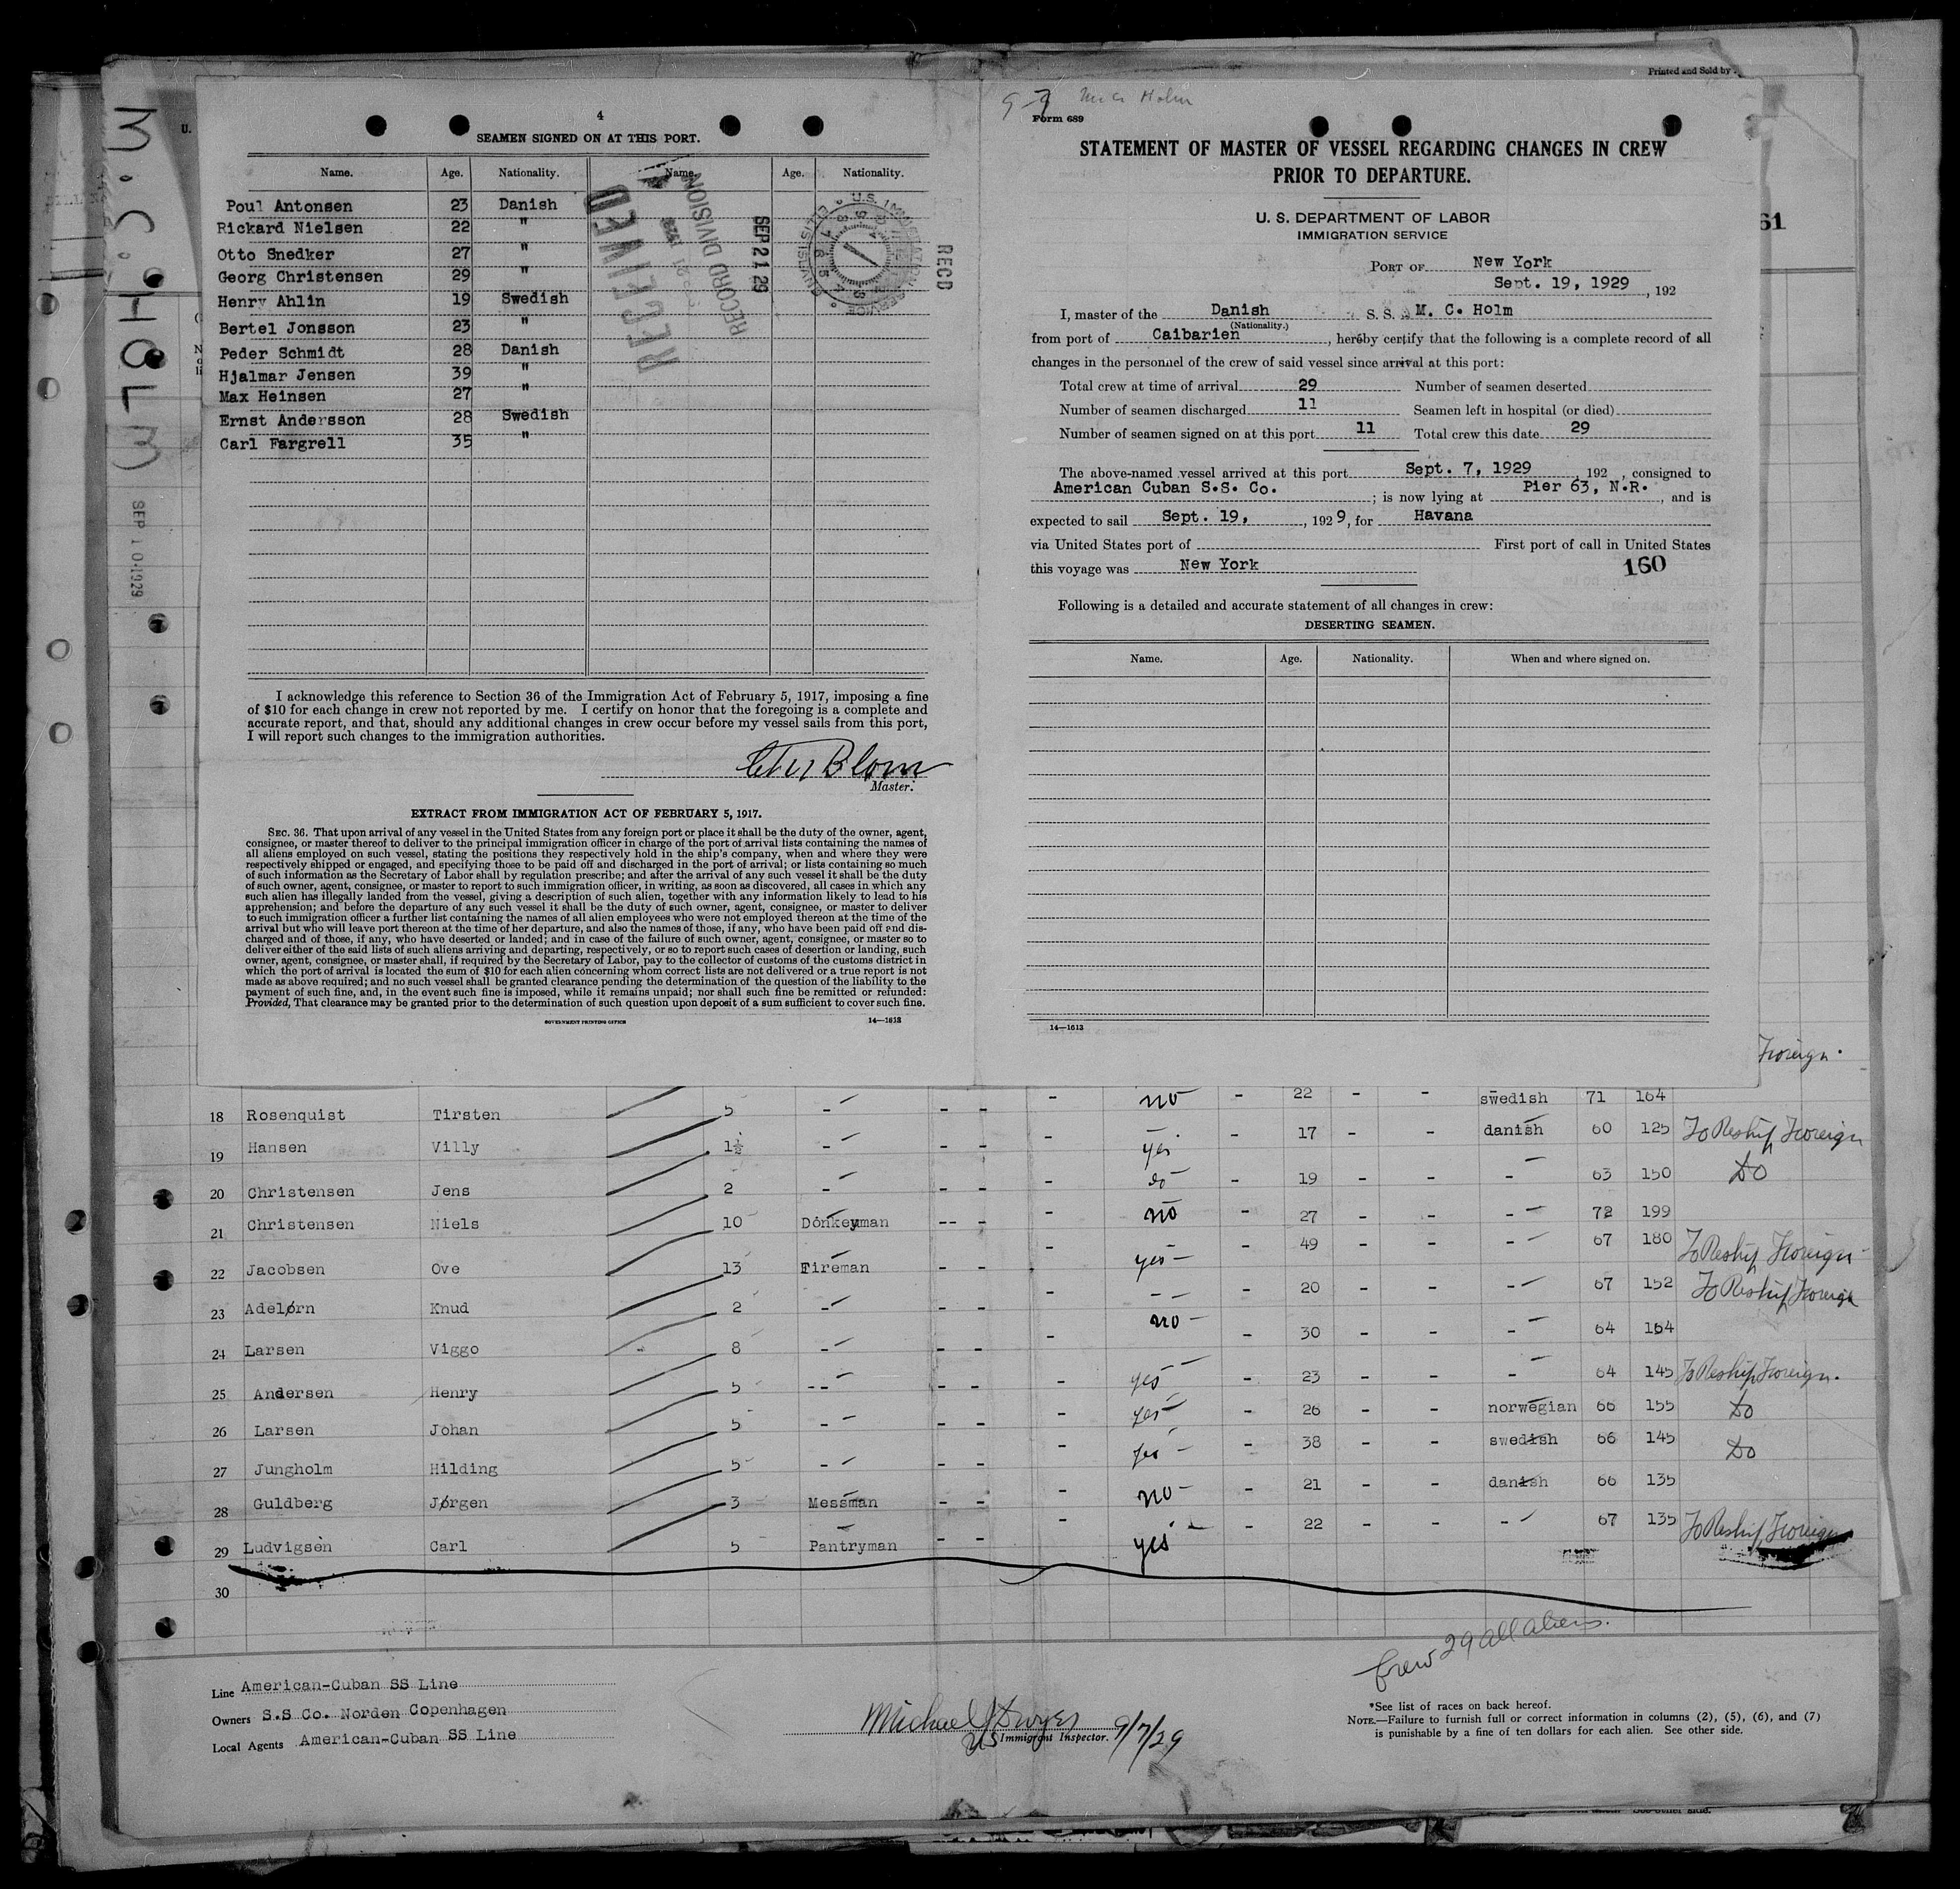 Printed and Sold by
M. C. HOLM
SEP 10 1929
U.
61
4
SEAMEN SIGNED ON AT THIS PORT.
Name. Age. Nationality. Name. Age. Nationality.
Poul Antonsen 23 Danish
Rickard Nielsen 22 "
Otto Snedker 27 "
Georg Christensen 29 "
Henry Ahlin 19 Swedish
Bertel Jonsson 23 "
Peder Schmidt 28 Danish
Hjalmar Jensen 39 "
Max Heinsen 27 "
Ernst Andersson 28 Swedish
Carl Fargrell 35 "
RECEIVED
RECORD DIVISION
SEP 21 29
RECD
I acknowledge this reference to Section 36 of the Immigration Act of February 5, 1917, imposing a fine
of $10 for each change in crew not reported by me. I certify on honor that the foregoing is a complete and
accurate report, and that, should any additional changes in crew occur before my vessel sails from this port,
I will report such changes to the immigration authorities.
Blom
Master.
EXTRACT FROM IMMIGRATION ACT OF FEBRUARY 5, 1917.
SEC. 36. That upon arrival of any vessel in the United States from any foreign port or place it shall be the duty of the owner, agent,
consignee, or master thereof to deliver to the principal immigration officer in charge of the port of arrival lists containing the names of
all aliens employed on such vessel, stating the positions they respectively hold in the ship's company, when and where they were
respectively shipped or engaged, and specifying those to be paid off and discharged in the port of arrival; or lists containing so much
of such information as the Secretary of Labor shall by regulation prescribe; and after the arrival of any such vessel it shall be the duty
of such owner, agent, consignee, or master to report to such immigration officer, in writing, as soon as discovered, all cases in which any
such alien has illegally landed from the vessel, giving a description of such alien, together with any information likely to lead to his
apprehension; and before the departure of any such vessel it shall be the duty of such owner, agent, consignee, or master to deliver
to such immigration officer a further list containing the names of all alien employees who were not employed thereon at the time of the
arrival but who will leave port thereon at the time of her departure, and also the names of those, if any, who have been paid off and dis-
charged and of those, if any, who have deserted or landed; and in case of the failure of such owner, agent, consignee, or master so to
deliver either of the said lists of such aliens arriving and departing, respectively, or so to report such cases of desertion or landing, such
owner, agent, consignee, or master shall, if required by the Secretary of Labor, pay to the collector of customs of the customs district in
which the port of arrival is located the sum of $10 for each alien concerning whom correct lists are not delivered or a true report is not
made as above required; and no such vessel shall be granted clearance pending the determination of the question of the liability to the
payment of such fine, and, in the event such fine is imposed, while it remains unpaid; nor shall such fine be remitted or refunded:
Provided, That clearance may be granted prior to the determination of such question upon deposit of a sum sufficient to cover such fine.
GOVERNMENT PRINTING OFFICE 14—1613
9-7 M. C. Holm
Form 689
STATEMENT OF MASTER OF VESSEL REGARDING CHANGES IN CREW
PRIOR TO DEPARTURE.
U. S. DEPARTMENT OF LABOR
IMMIGRATION SERVICE
PORT OF New York
Sept. 19, 1929, 192
I, master of the Danish S. S. M. C. Holm
(Nationality.)
from port of Caibarien, hereby certify that the following is a complete record of all
changes in the personnel of the crew of said vessel since arrival at this port:
Total crew at time of arrival 29 Number of seamen deserted
Number of seamen discharged 11 Seamen left in hospital (or died)
Number of seamen signed on at this port 11 Total crew this date 29
The above-named vessel arrived at this port Sept. 7, 1929, 192 , consigned to
American Cuban S.S. Co. ; is now lying at Pier 63, N.R. , and is
expected to sail Sept. 19, , 1929, for Havana
via United States port of First port of call in United States
this voyage was New York
160
Following is a detailed and accurate statement of all changes in crew:
DESERTING SEAMEN.
Name. Age. Nationality. When and where signed on.
14—1613
Foreign.
18 Rosenquist Tirsten 5 - - - - no - 22 - - swedish 71 164
19 Hansen Villy 1½ - - - - yes - 17 - - danish 60 125 To Reship Foreign
20 Christensen Jens 2 - - - - do - 19 - - - 63 150 Do
21 Christensen Niels 10 Donkeyman -- - - no - 27 - - - 72 199
22 Jacobsen Ove 13 Fireman - - - yes - 49 - - - 67 180 To Reship Foreign
23 Adelørn Knud 2 - - - - - - 20 - - - 67 152 To Reship Foreign
24 Larsen Viggo 8 - - - - no - 30 - - - 64 164
25 Andersen Henry 5 -- - - - yes - 23 - - - 64 145 To Reship Foreign.
26 Larsen Johan 5 - - - - yes - 26 - - norwegian 66 155 Do
27 Jungholm Hilding 5 - - - - yes - 38 - - swedish 66 145 Do
28 Guldberg Jørgen 3 Messman - - - no - 21 - - danish 66 135
29 Ludvigsen Carl 5 Pantryman - - - yes - 22 - - - 67 135 To Reship Foreign
30
Crew 29 all aliens.
Line American-Cuban SS Line
Owners S.S Co. Norden Copenhagen
Local Agents American-Cuban SS Line
Michael J Dwyer
US Immigrant Inspector. 9/7/29
*See list of races on back hereof.
NOTE.—Failure to furnish full or correct information in columns (2), (5), (6), and (7)
is punishable by a fine of ten dollars for each alien. See other side.